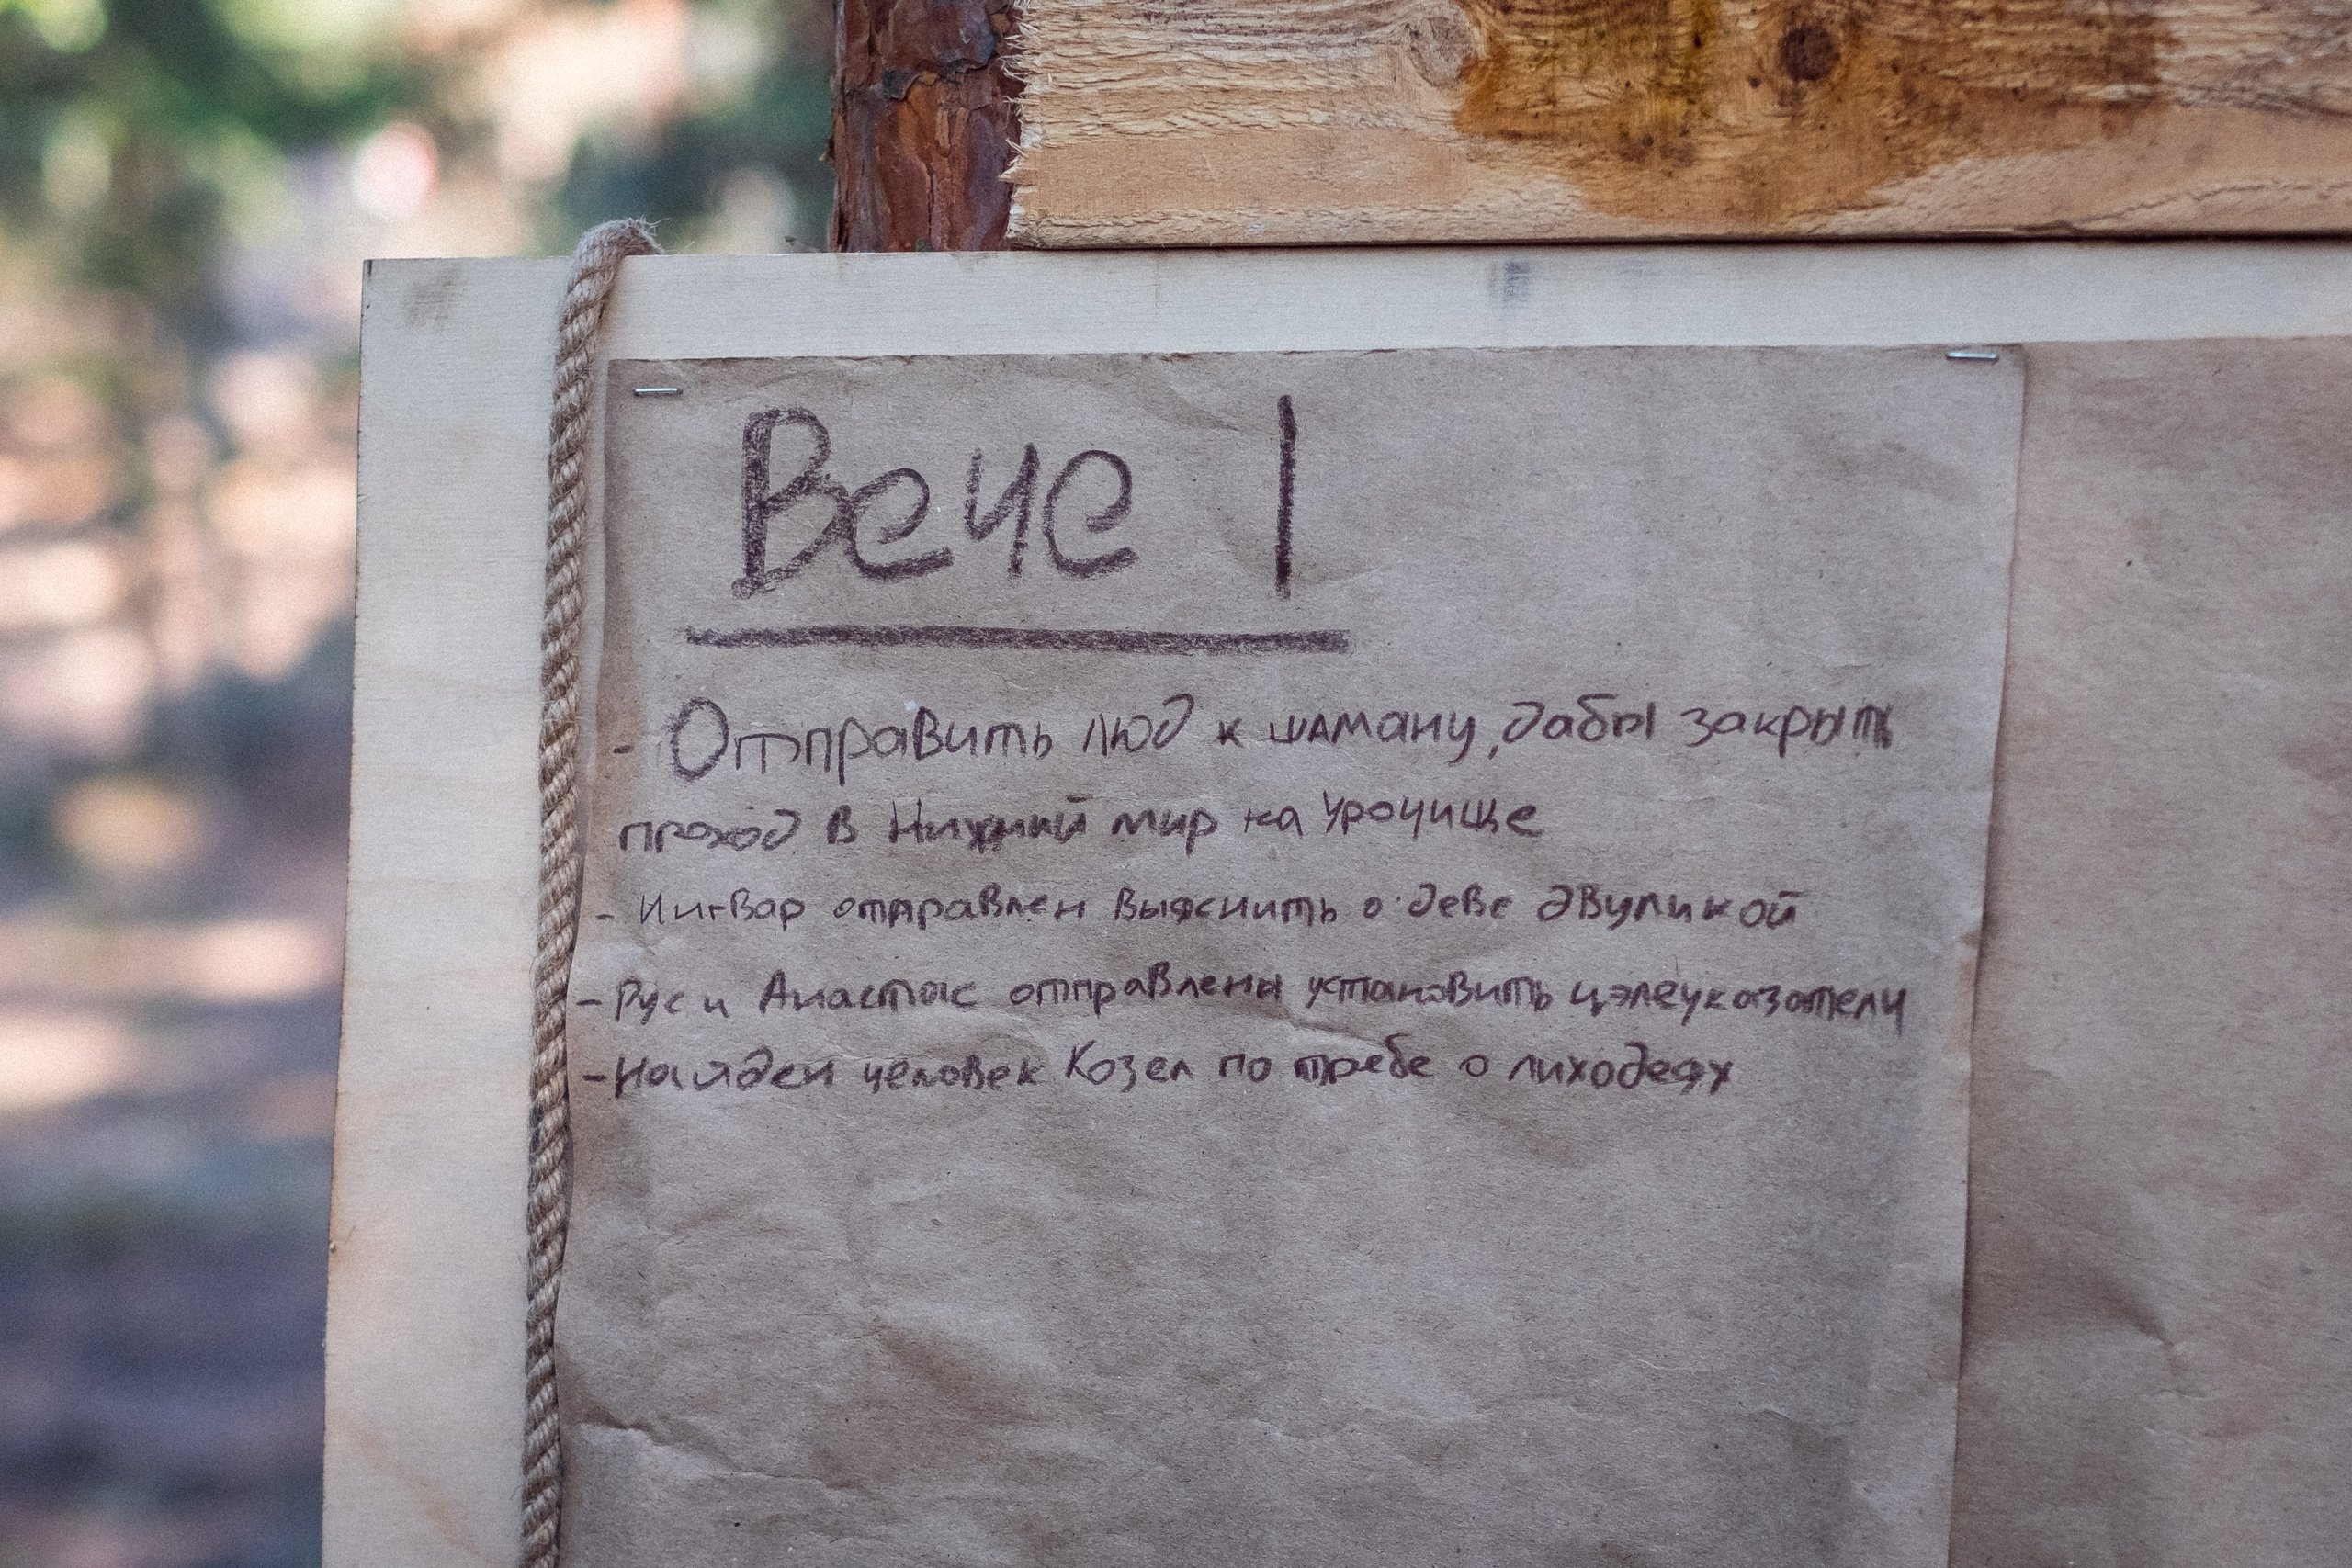 Вече 1
- Отправить люд к шаману, дабы закрыть
проход в Нижний мир на урочище
- Ингвар отправлен выяснить о деве двуликой
- Рус и Анастас отправлены установить цэлеуказатели
- Найден человек Козел по требе о лиходеях